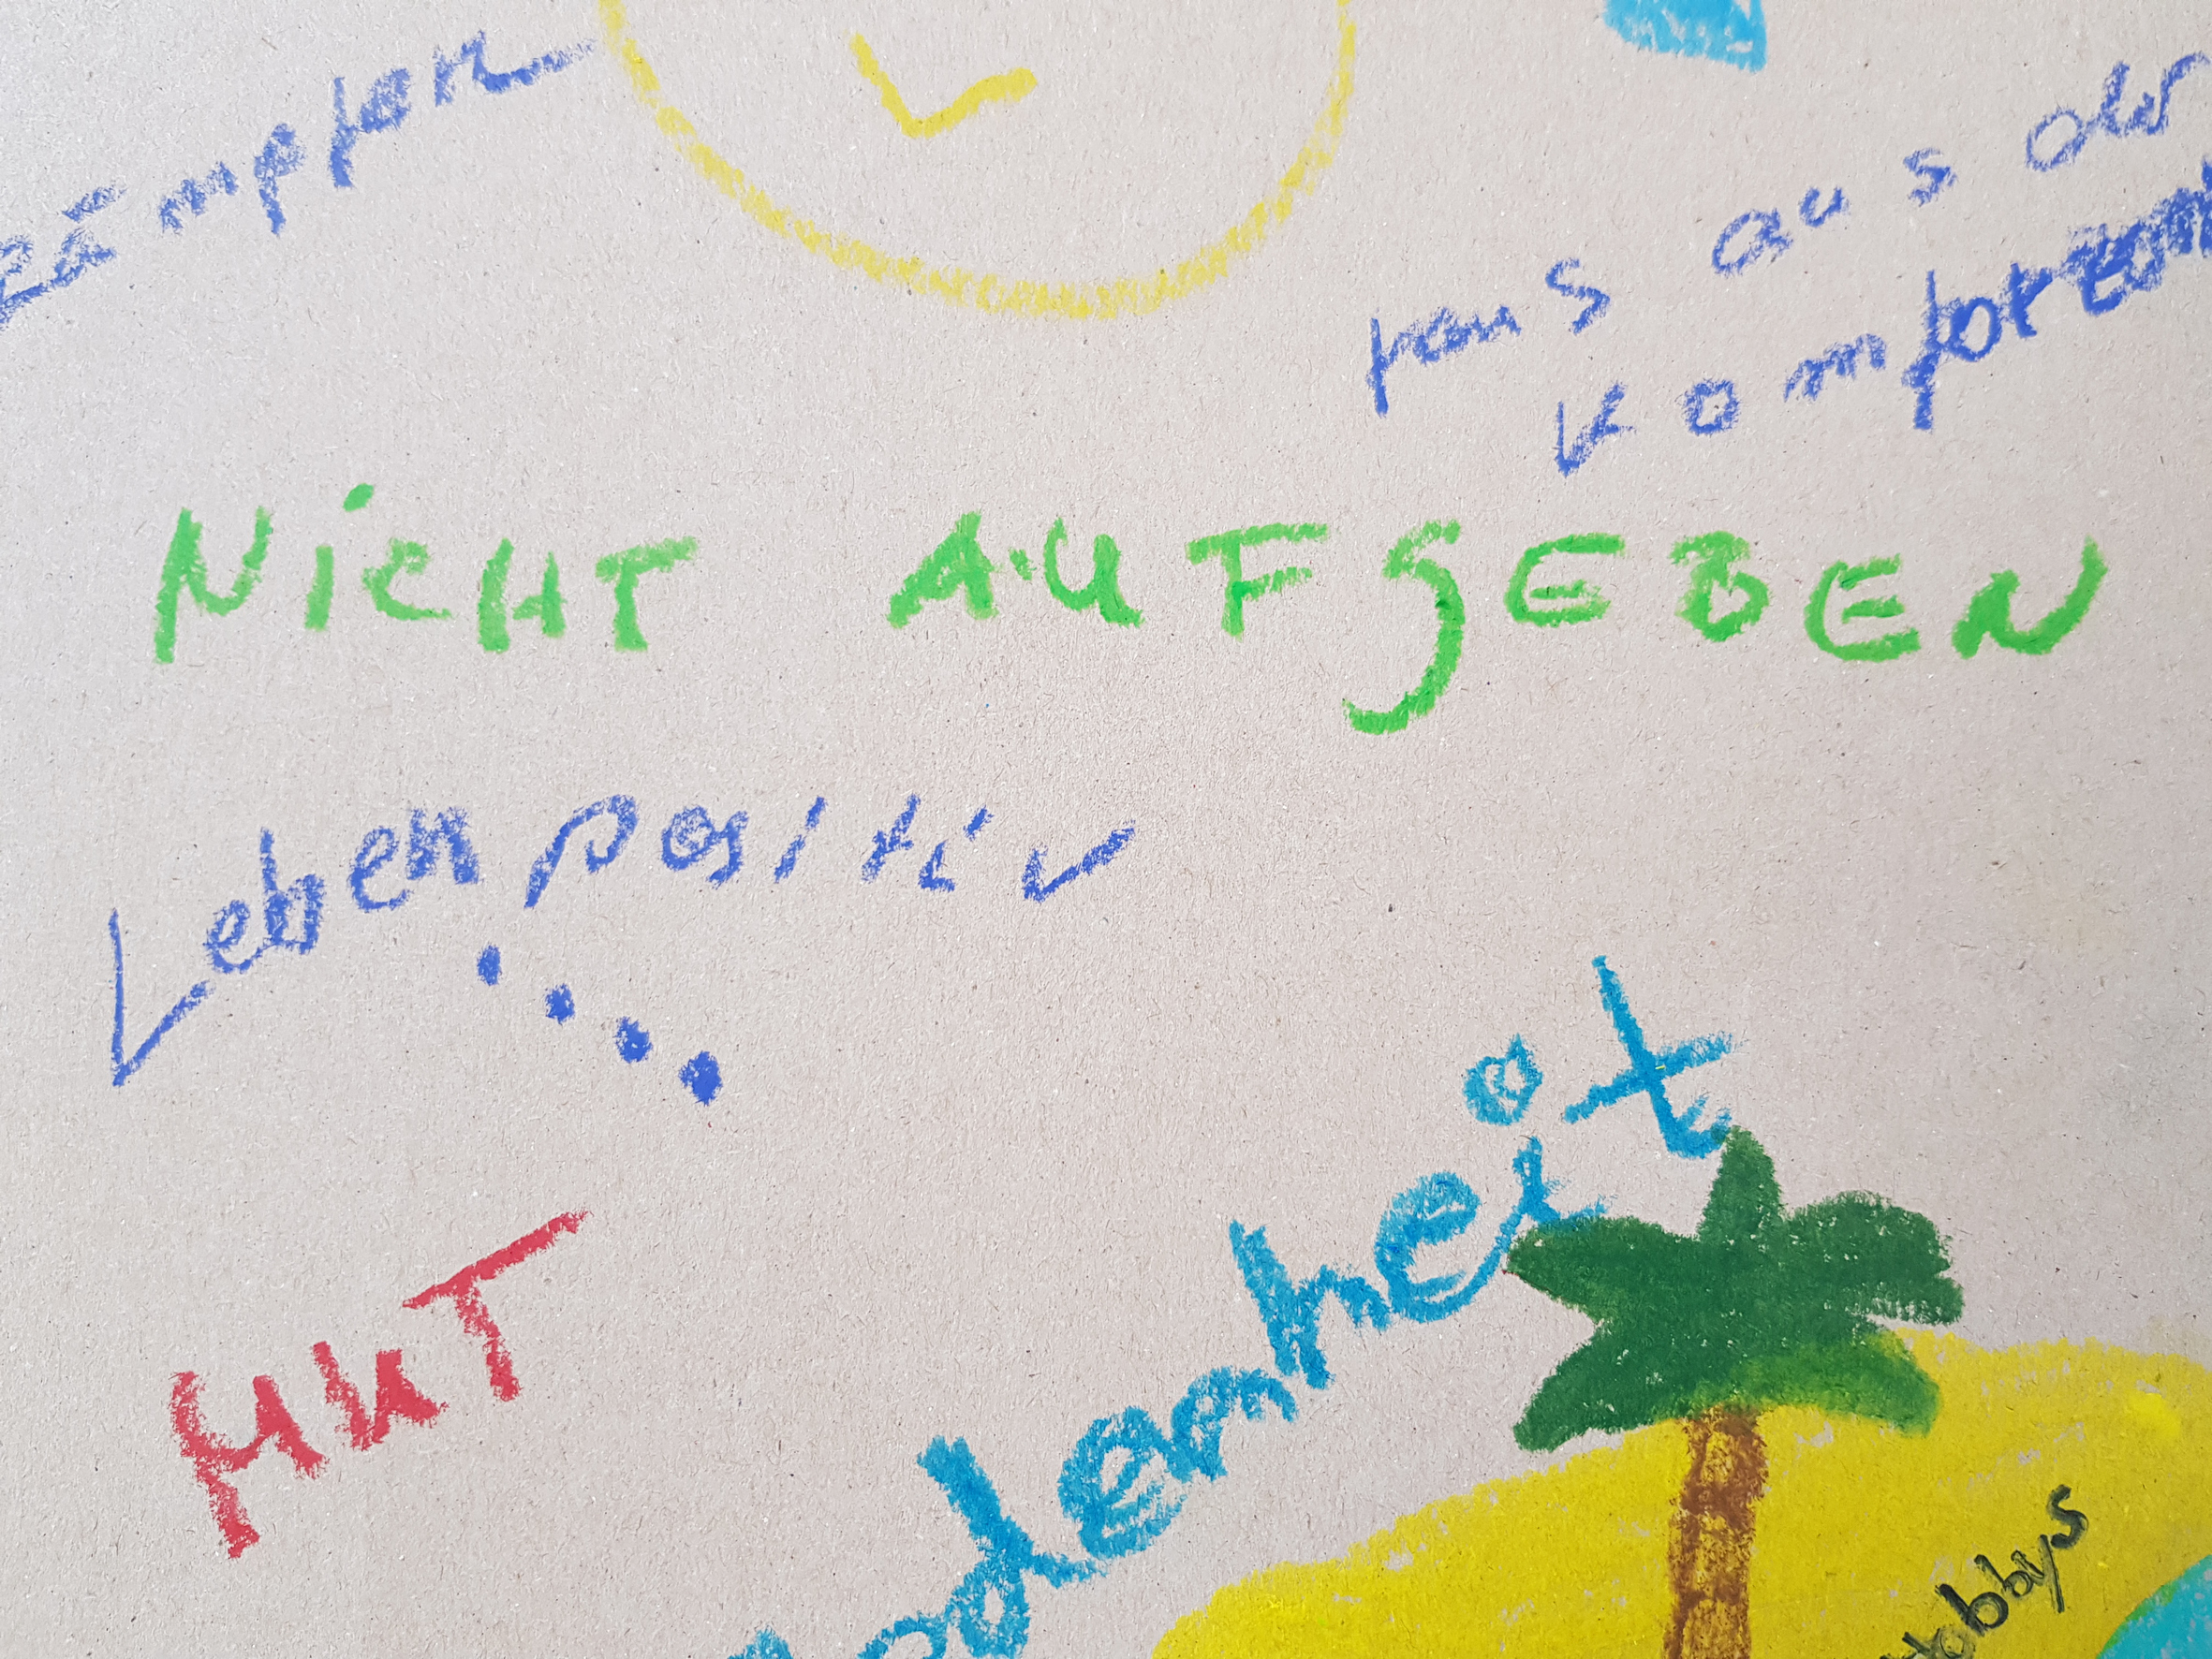 kämpfen
raus aus der
Komfortzone
NiCHT AUFGEBEN
Leben positiv
....
MUT
denheit
Hobbys